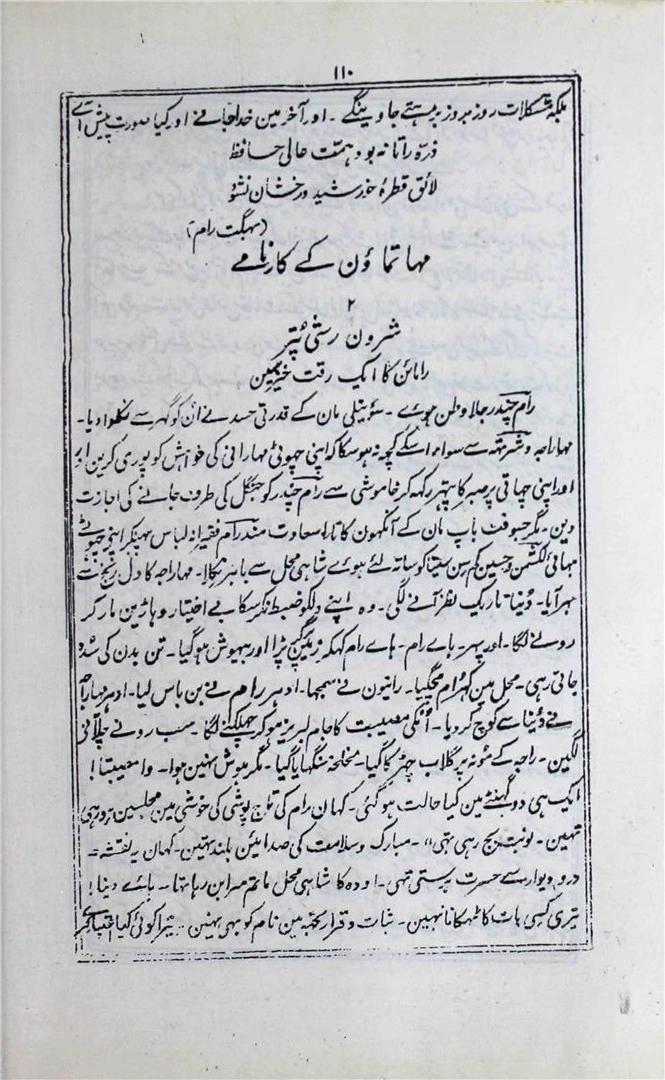 ۱۱۰
بلکہ مشکلات روز بروز بڑہتے جاوینگے - اور آخر مین خدا جانے اور کیا صورت پیش آے
ذرہ را تا نہ بود ہمت عالی حافظ
لائق قطرۂ خورشید درخشان نشود
(بہگت رام)
مہاتماؤن کے کارنامے
۲
شرون رشی پُتر
راماین کا ایک رقت خیز سین
رام چندر جلا وطن ہوے - سوئیلی مان کے قدرتی حسد نے ان کو گہر سے نکلوا دیا -
مہاراجہ دشرتہہ سے سواے اسکے کچہہ نہ ہوسکا کہ اپنی چہوٹی مہارانی کی خواہش کو پوری کرین اور
اور اپنی چہاتی پر صبر کا پتہر رکہہ کر خاموشی سے رام چندر کو جنگل کی طرف جانے کی اجازت
دین - مگر جسوقت باپ مان کے آنکہون کا تارا سعادت مند رام فقیرانہ لباس پہنکر اپنے چہوٹے
بہائی لکشمن و حسین کم سن سیتا کو ساتہ لئے ہوے شاہی محل سے باہر نکلا - مہاراجہ کا دل رنج سے
بہر آیا - دُنیا تاریک نظر آنے لگی - وہ اپنے دلکو ضبط نکر سکا بے اختیار دہاڑین مار کر
رونے لگا - اور پہر - ہاے رام - ہاے رام کہکر زمین پر گر پڑا اور بیہوش ہوگیا - تن بدن کی سُدہ
جاتی رہی - محل مین کُہرام مچگیا - رانیون نے سمجہا - ادہر رام نے بن باس لیا - ادہر مہاراجہ
نے دُنیا سے کوچ کر دیا - اُنکی مصیبت کا جام لبریز ہوکر چہلکنے لگا - سب رونے چلّانے
لگین - راجہ کے مونہ پر گلاب چہڑکا گیا - لخلخہ سنگہایا گیا - مگر ہوش نہین ہوا - وا مصیبتا !
ایک ہی دو گہنٹے مین کیا حالت ہو گئی - کہان رام کی تاج پوشی کی خوشی مین مجلسین ہو رہی
تہین - نوبت بج رہی تہی" - مبارک و سلامت کی صدائین بلند تہین - کہان یہ نقشہ =
در و دیوار سے حسرت برستی تہی - اودہ کا شاہی محل ماتم سرا بن رہا تہا - ہائے دینا !
تیری کسی بات کا ٹہکانا نہین - ثبات و قرار تجہہ مین نام کو بہی نہین - تیرا کوئی کیا اعتبار کرے